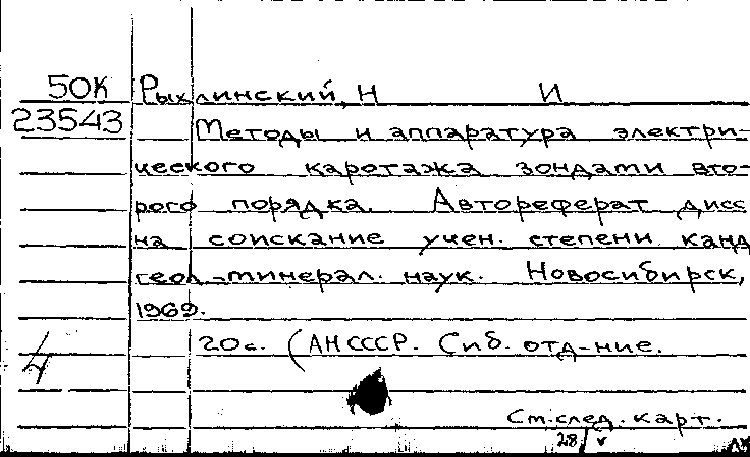 50К Рыхлинский, Н И
23543 Методы и аппаратура электри-
ческого каротажа зондами вто-
рого порядка. Автореферат дисс
на соискание учен. степени канд
геол-минерал. наук. Новосибирск,
1969.
20 с. (АН СССР. Сиб. отд-ние.
4
См.след. карт.
28/V